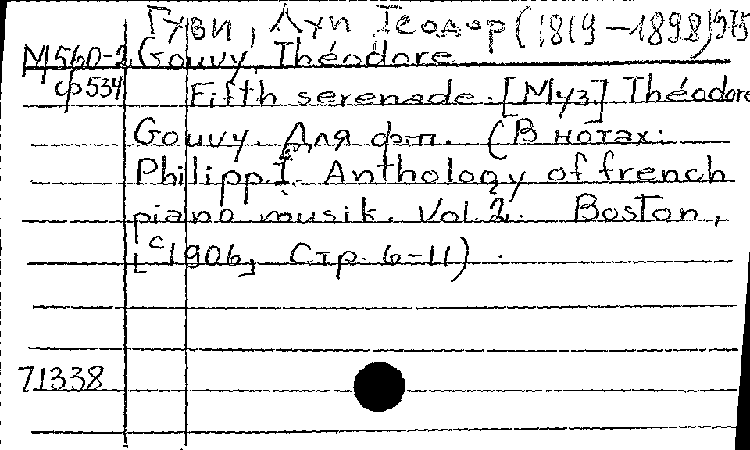 Гуви, Луи Теодор (1819-1898)
М560-2 Gouvy, Théodore
ф534 Fifth serenade. [Муз.] Théodore
Gouvy. Для ф.-п. (В нотах:
Philipp I. Anthology of french
piano musik. Vol. 2. Boston,
[c1906], Стр. 6-11)
71338